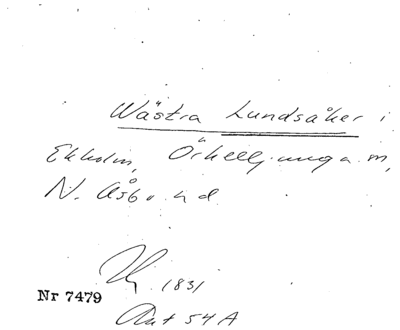 Wästra Lundsåker i
Ekholm, Örkelljunga m,
N. Åsbo hd
Hy 1831
Nr 7479
Ant 54 A